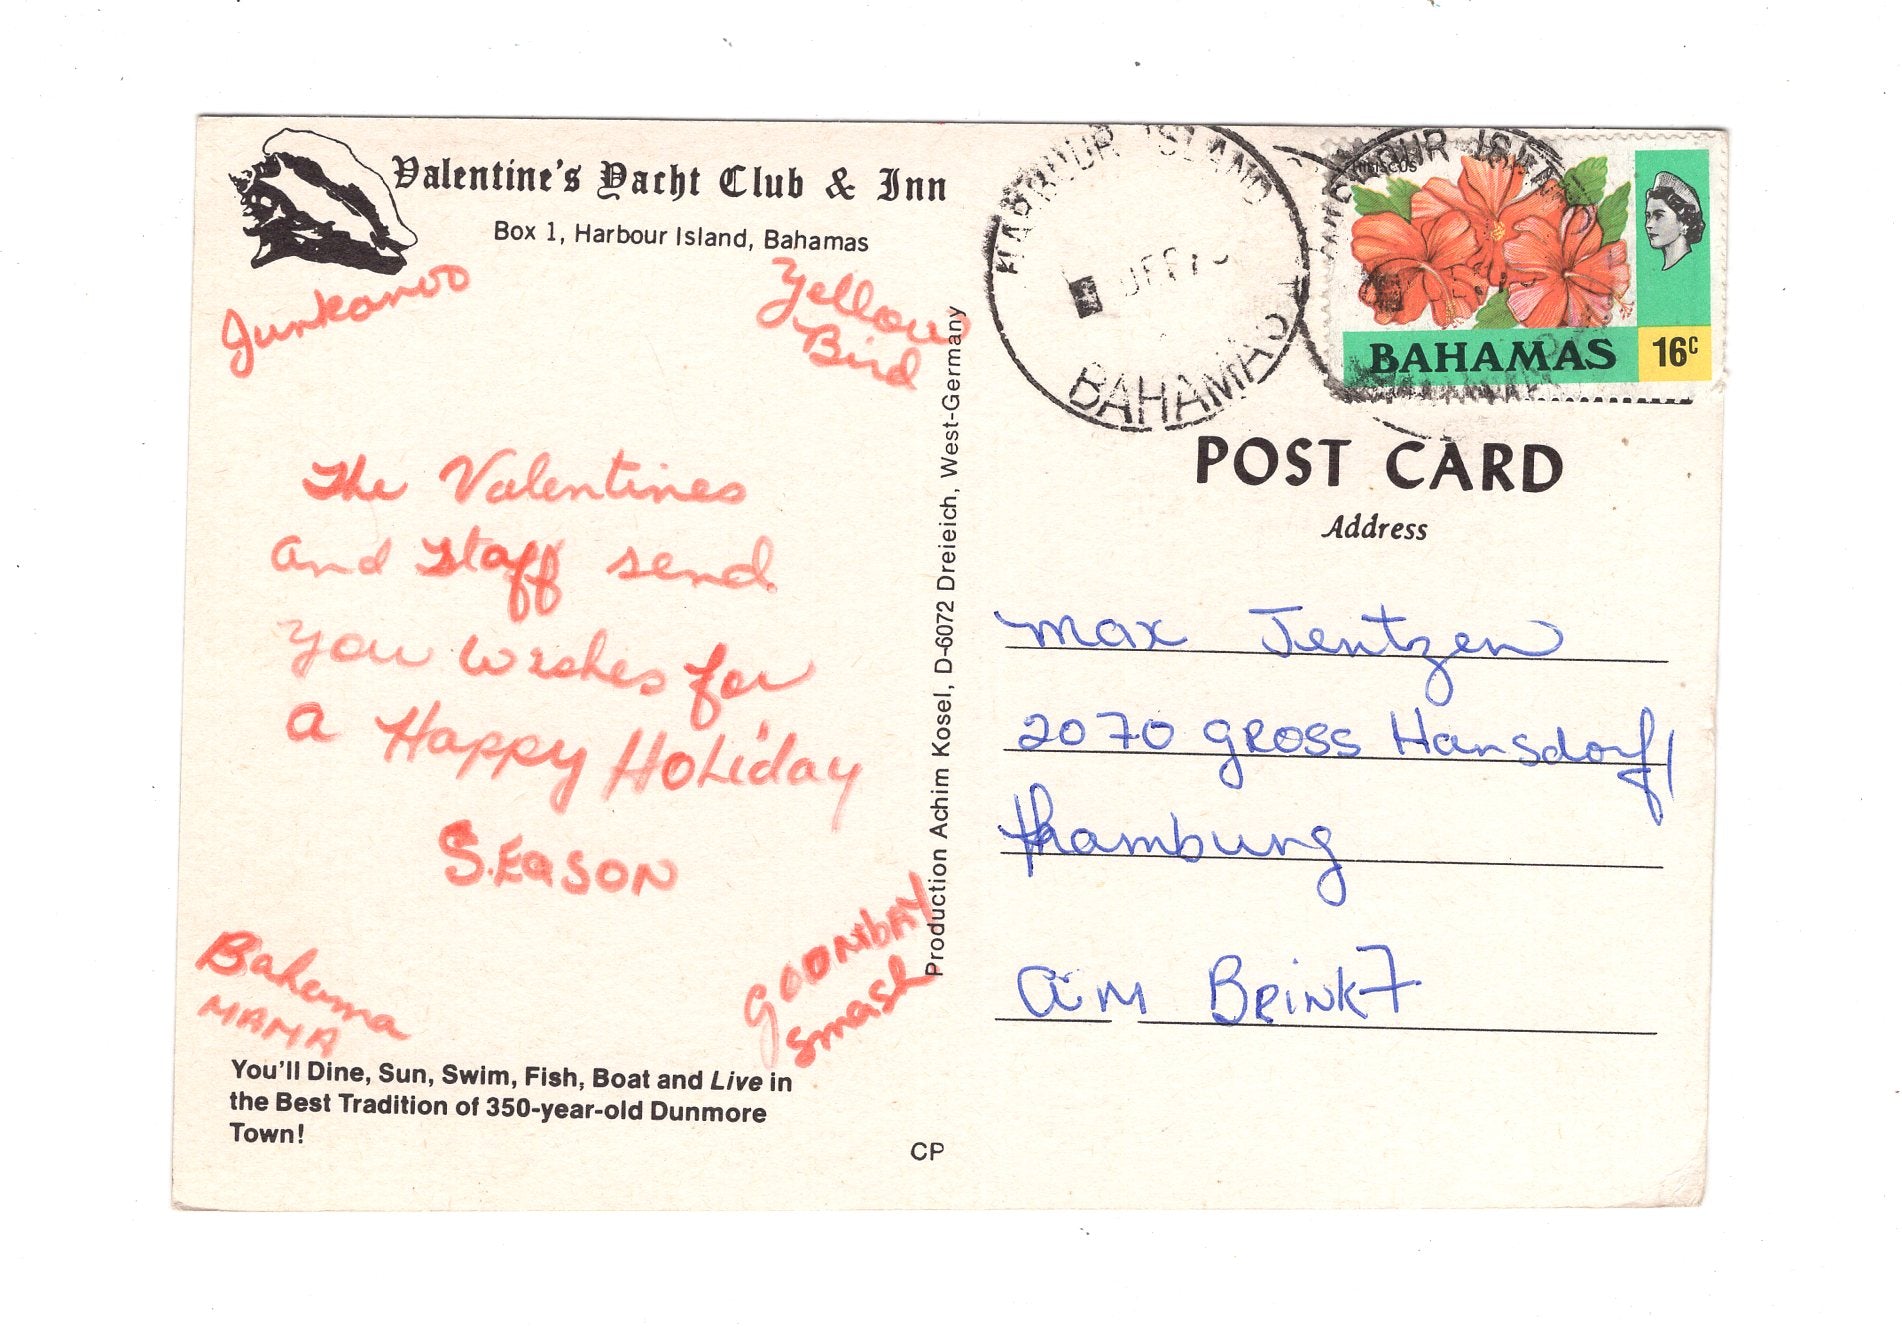 Valentine's Yacht Club & Inn
Box 1, Harbour Island, Bahamas
Junkanoo
Yellow
Bird
The Valentines
and staff send
you wishes for
a Happy Holiday
SEASON
Bahama
MAMA
GOOMBAY
smash
You'll Dine, Sun, Swim, Fish, Boat and Live in
the Best Tradition of 350-year-old Dunmore
Town!
CP
Production Achim Kosel, D-6072 Dreieich, West-Germany
HARBOUR ISLAND
BAHAMAS
HARBOUR ISLAND
HIBISCUS
BAHAMAS 16c
POST CARD
Address
Max Jentzen
2070 GROSS Hansdorf/
Hamburg
am BRINK 7